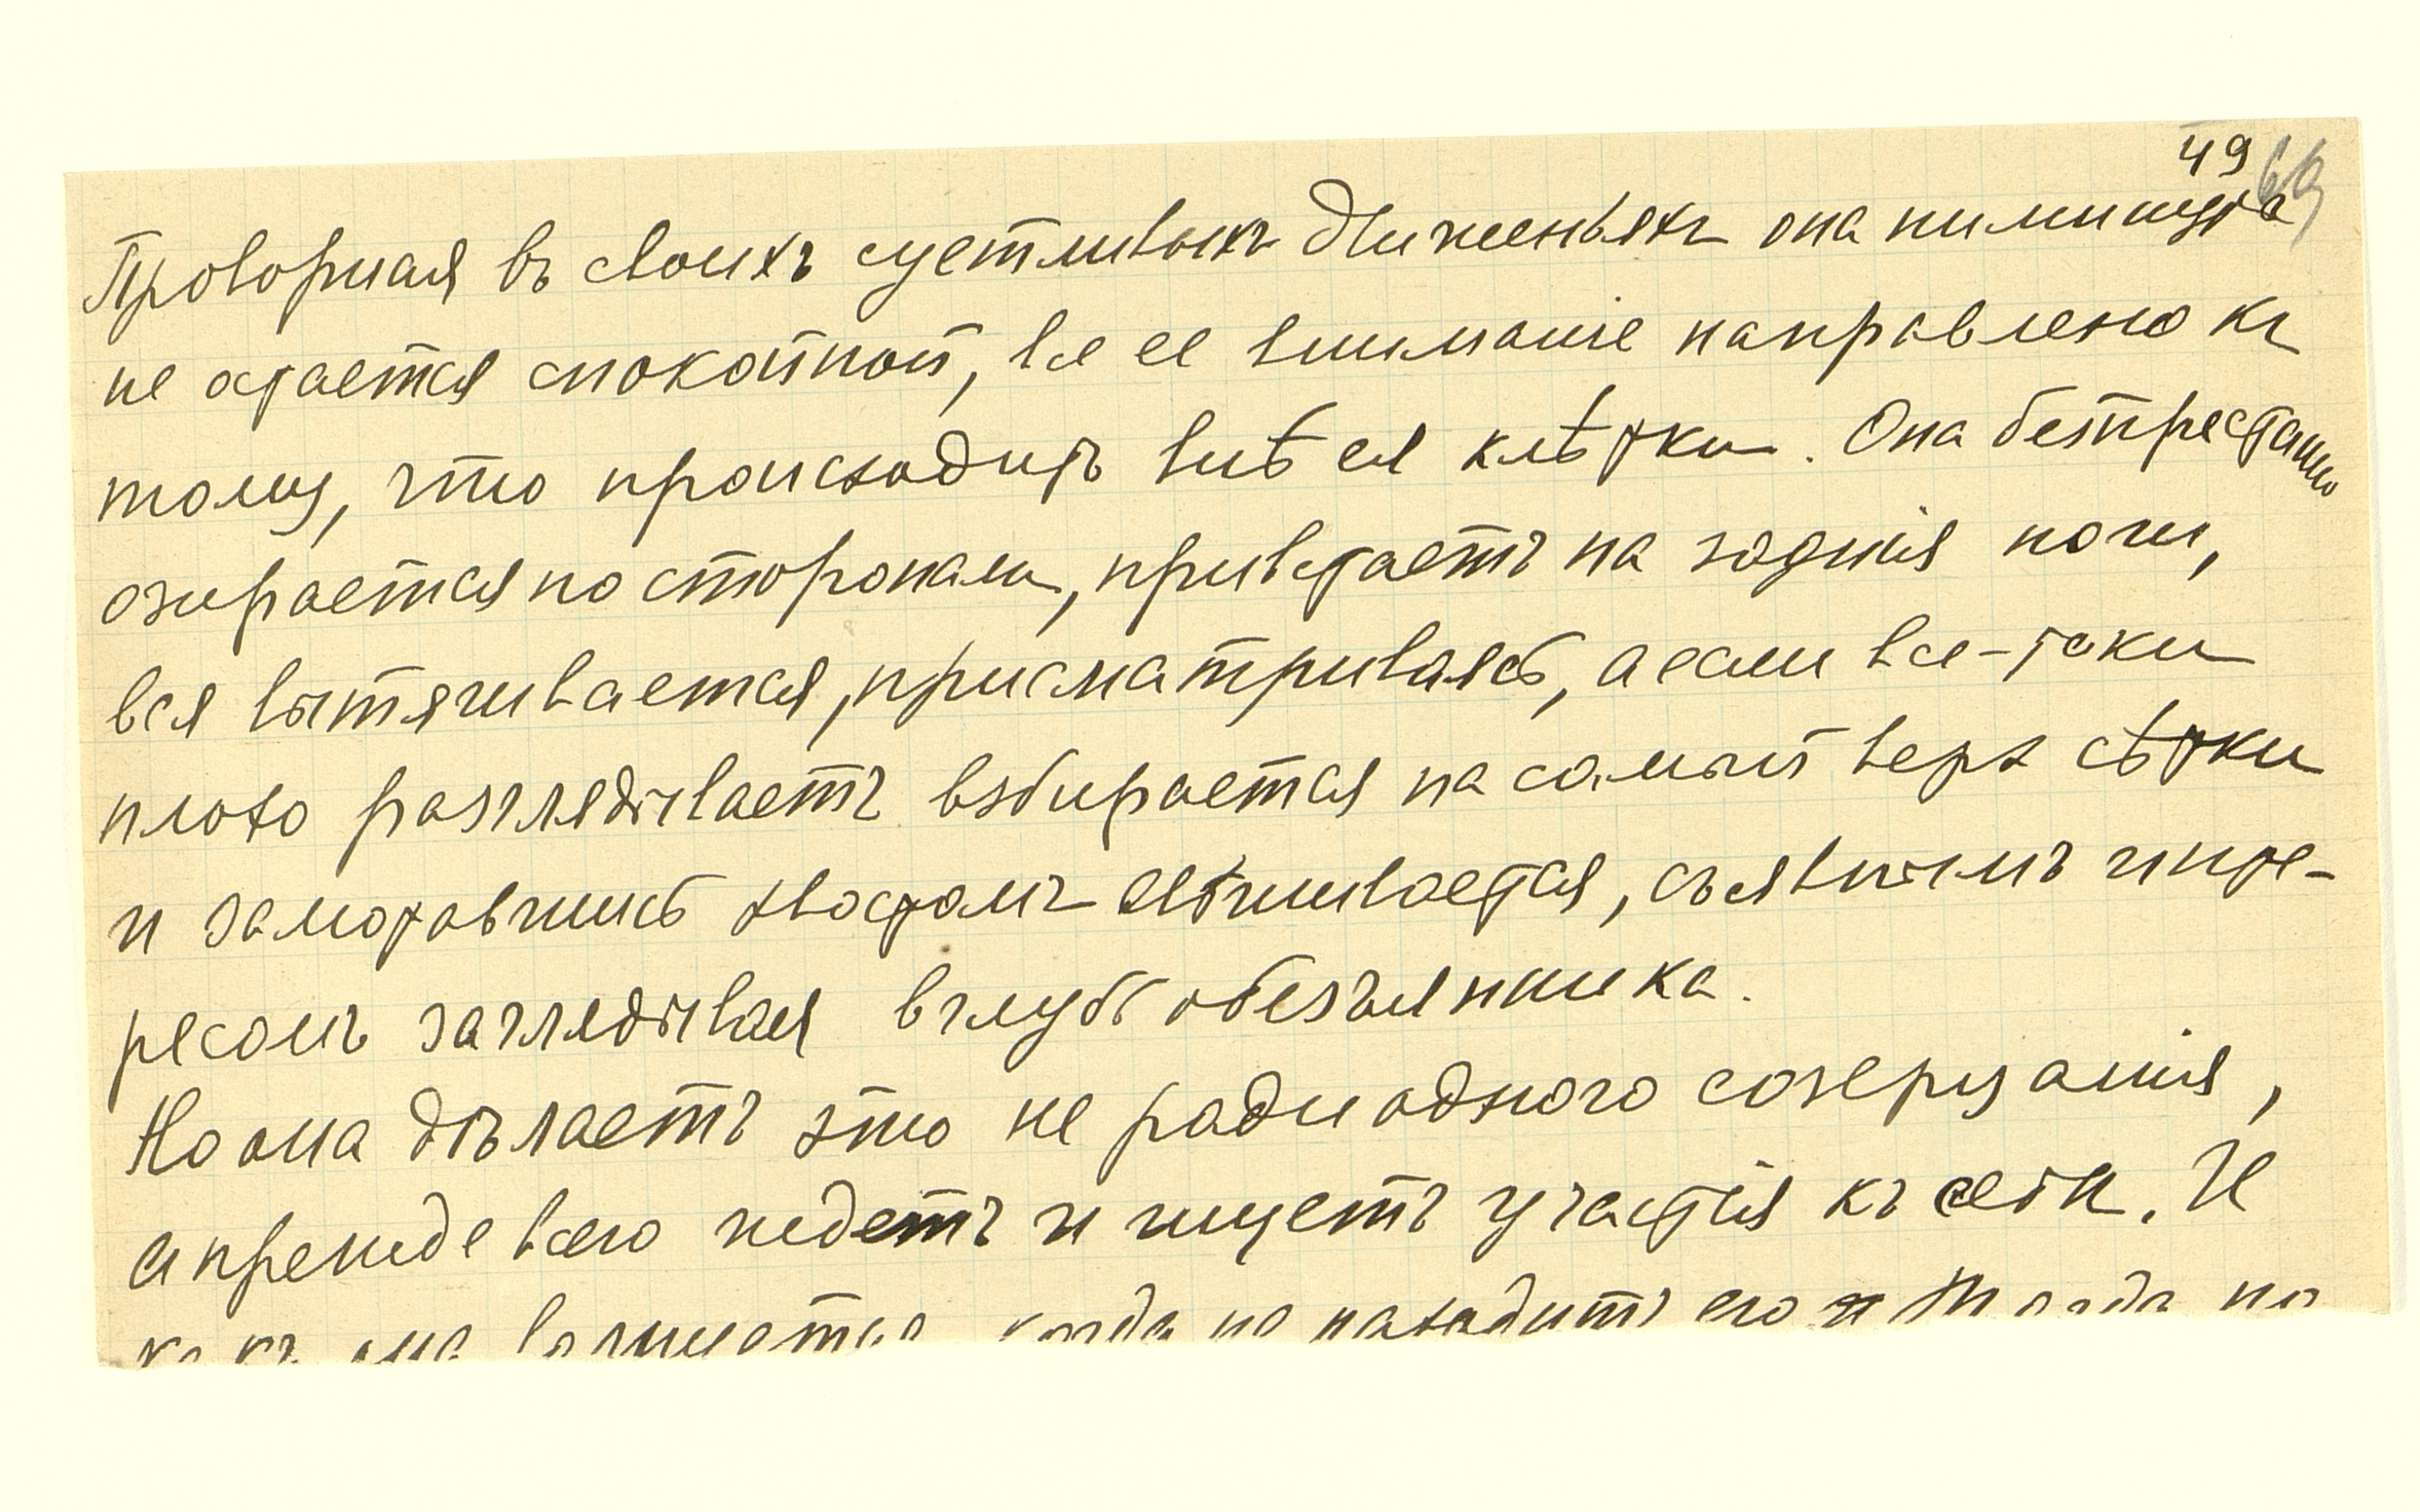 49 69
Проворная въ своихъ суетливыхъ движеньяхъ она ни минуты
не остается спокойной, все ее вниманіе направлено къ
тому, что происходитъ внѣ ея клѣтки. Она безпрестанно
озирается по сторонамъ, привстаетъ на заднія ноги,
вся вытягивается, присматриваясь, а если все-таки
плохо разглядываетъ взбирается на самый верх сѣтки
и замотавшись хвостомъ свѣшивается, съ явнымъ инте-
ресомъ заглядывая вглубь обезьянника.
Но она дѣлаетъ это не ради одного созерцанія,
а прежде всего ждетъ и ищетъ участія къ себѣ. И
какъ она волнуется, когда не находитъ его и тогда